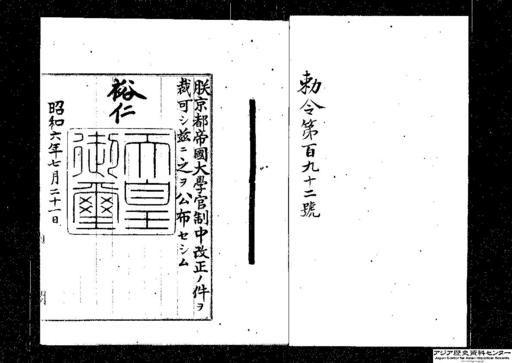 勅令第百九十二號
朕京都帝國大學官制中改正ノ件ヲ
裁可シ茲ニ之ヲ公布セシム
裕仁
天皇
御璽
昭和六年七月二十一日
アジア歴史資料センター
Japan Center for Asian Historical Records